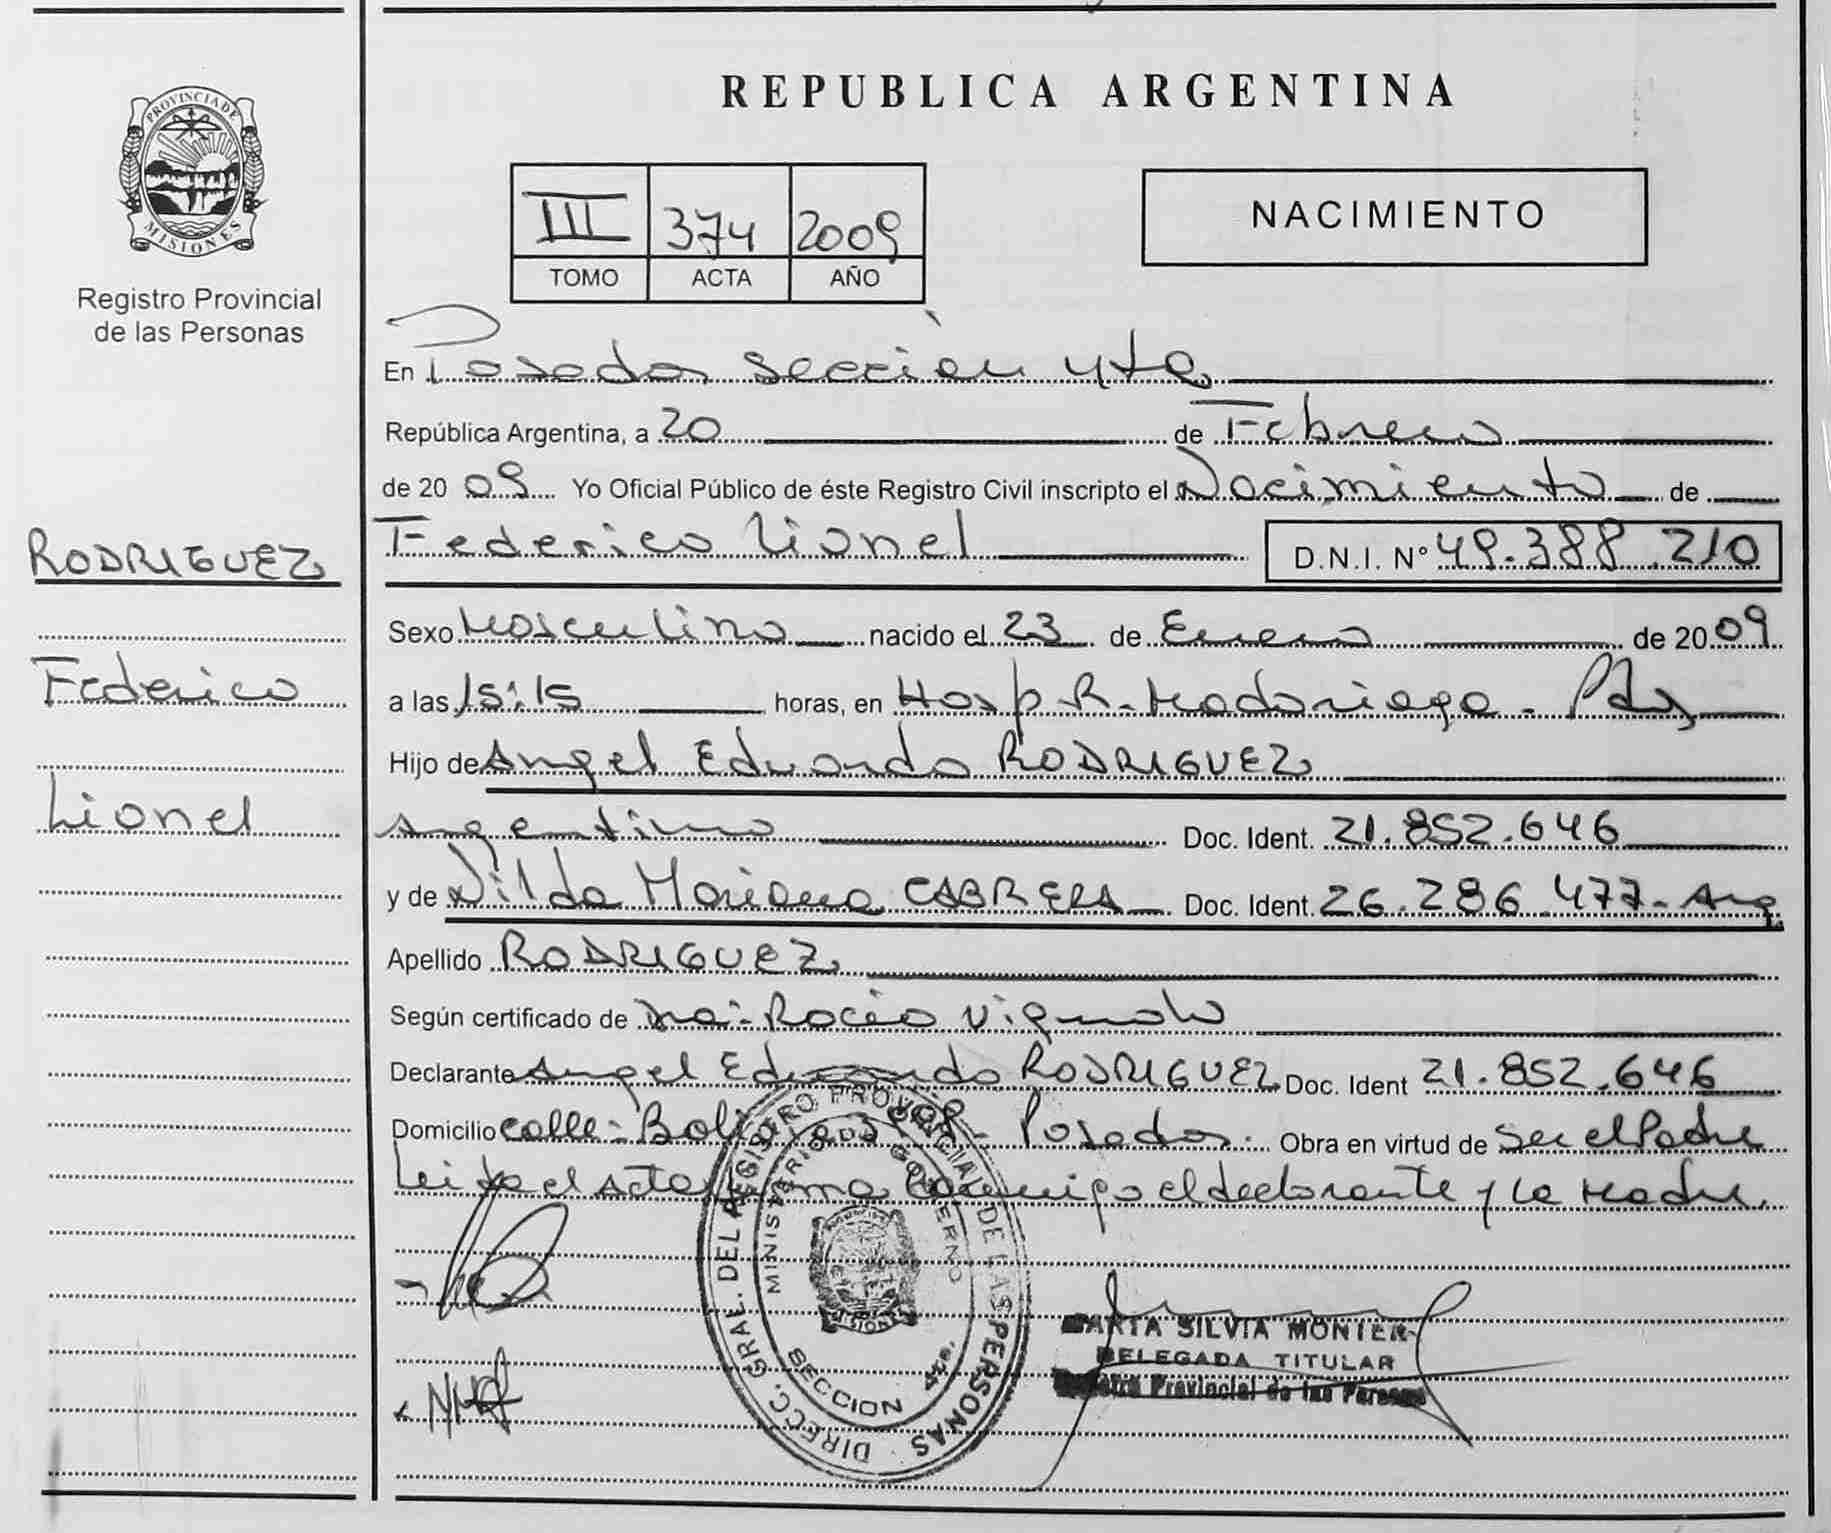 PROVINCIA DE
MISIONES
Registro Provincial
de las Personas
RODRIGUEZ
Federico
Lionel
REPUBLICA ARGENTINA
III 374 2009
TOMO ACTA AÑO
NACIMIENTO
En Posadas Sección 4ta
República Argentina, a 20 de Febrero
de 20 09 Yo Oficial Público de éste Registro Civil inscripto el Nacimiento de
Federico Lionel D.N.I. Nº 49.388.210
Sexo Masculino nacido el 23 de Enero de 20 09
a las 15:15 horas, en Hosp R. Madariaga - Pdas
Hijo de Angel Eduardo RODRIGUEZ
Argentino Doc. Ident. 21.852.646
y de Nilda Mariana CABRERA Doc. Ident. 26.286.477- Arg.
Apellido RODRIGUEZ
Según certificado de Dra: Rocío
Declarante Angel Eduardo RODRIGUEZ Doc. Ident 21.852.646
Domicilio calle: - Posadas. Obra en virtud de Ser el Padre
Leida el acta firma conmigo el declarante y la Madre.
DIRECC. GRAL. DEL REGISTRO PROVINCIAL DE LAS PERSONAS
MINISTERIO DE GOBIERNO
MISIONES
SECCION 4ta.
SILVIA MONIER
DELEGADA TITULAR
Registro Provincial de las Personas